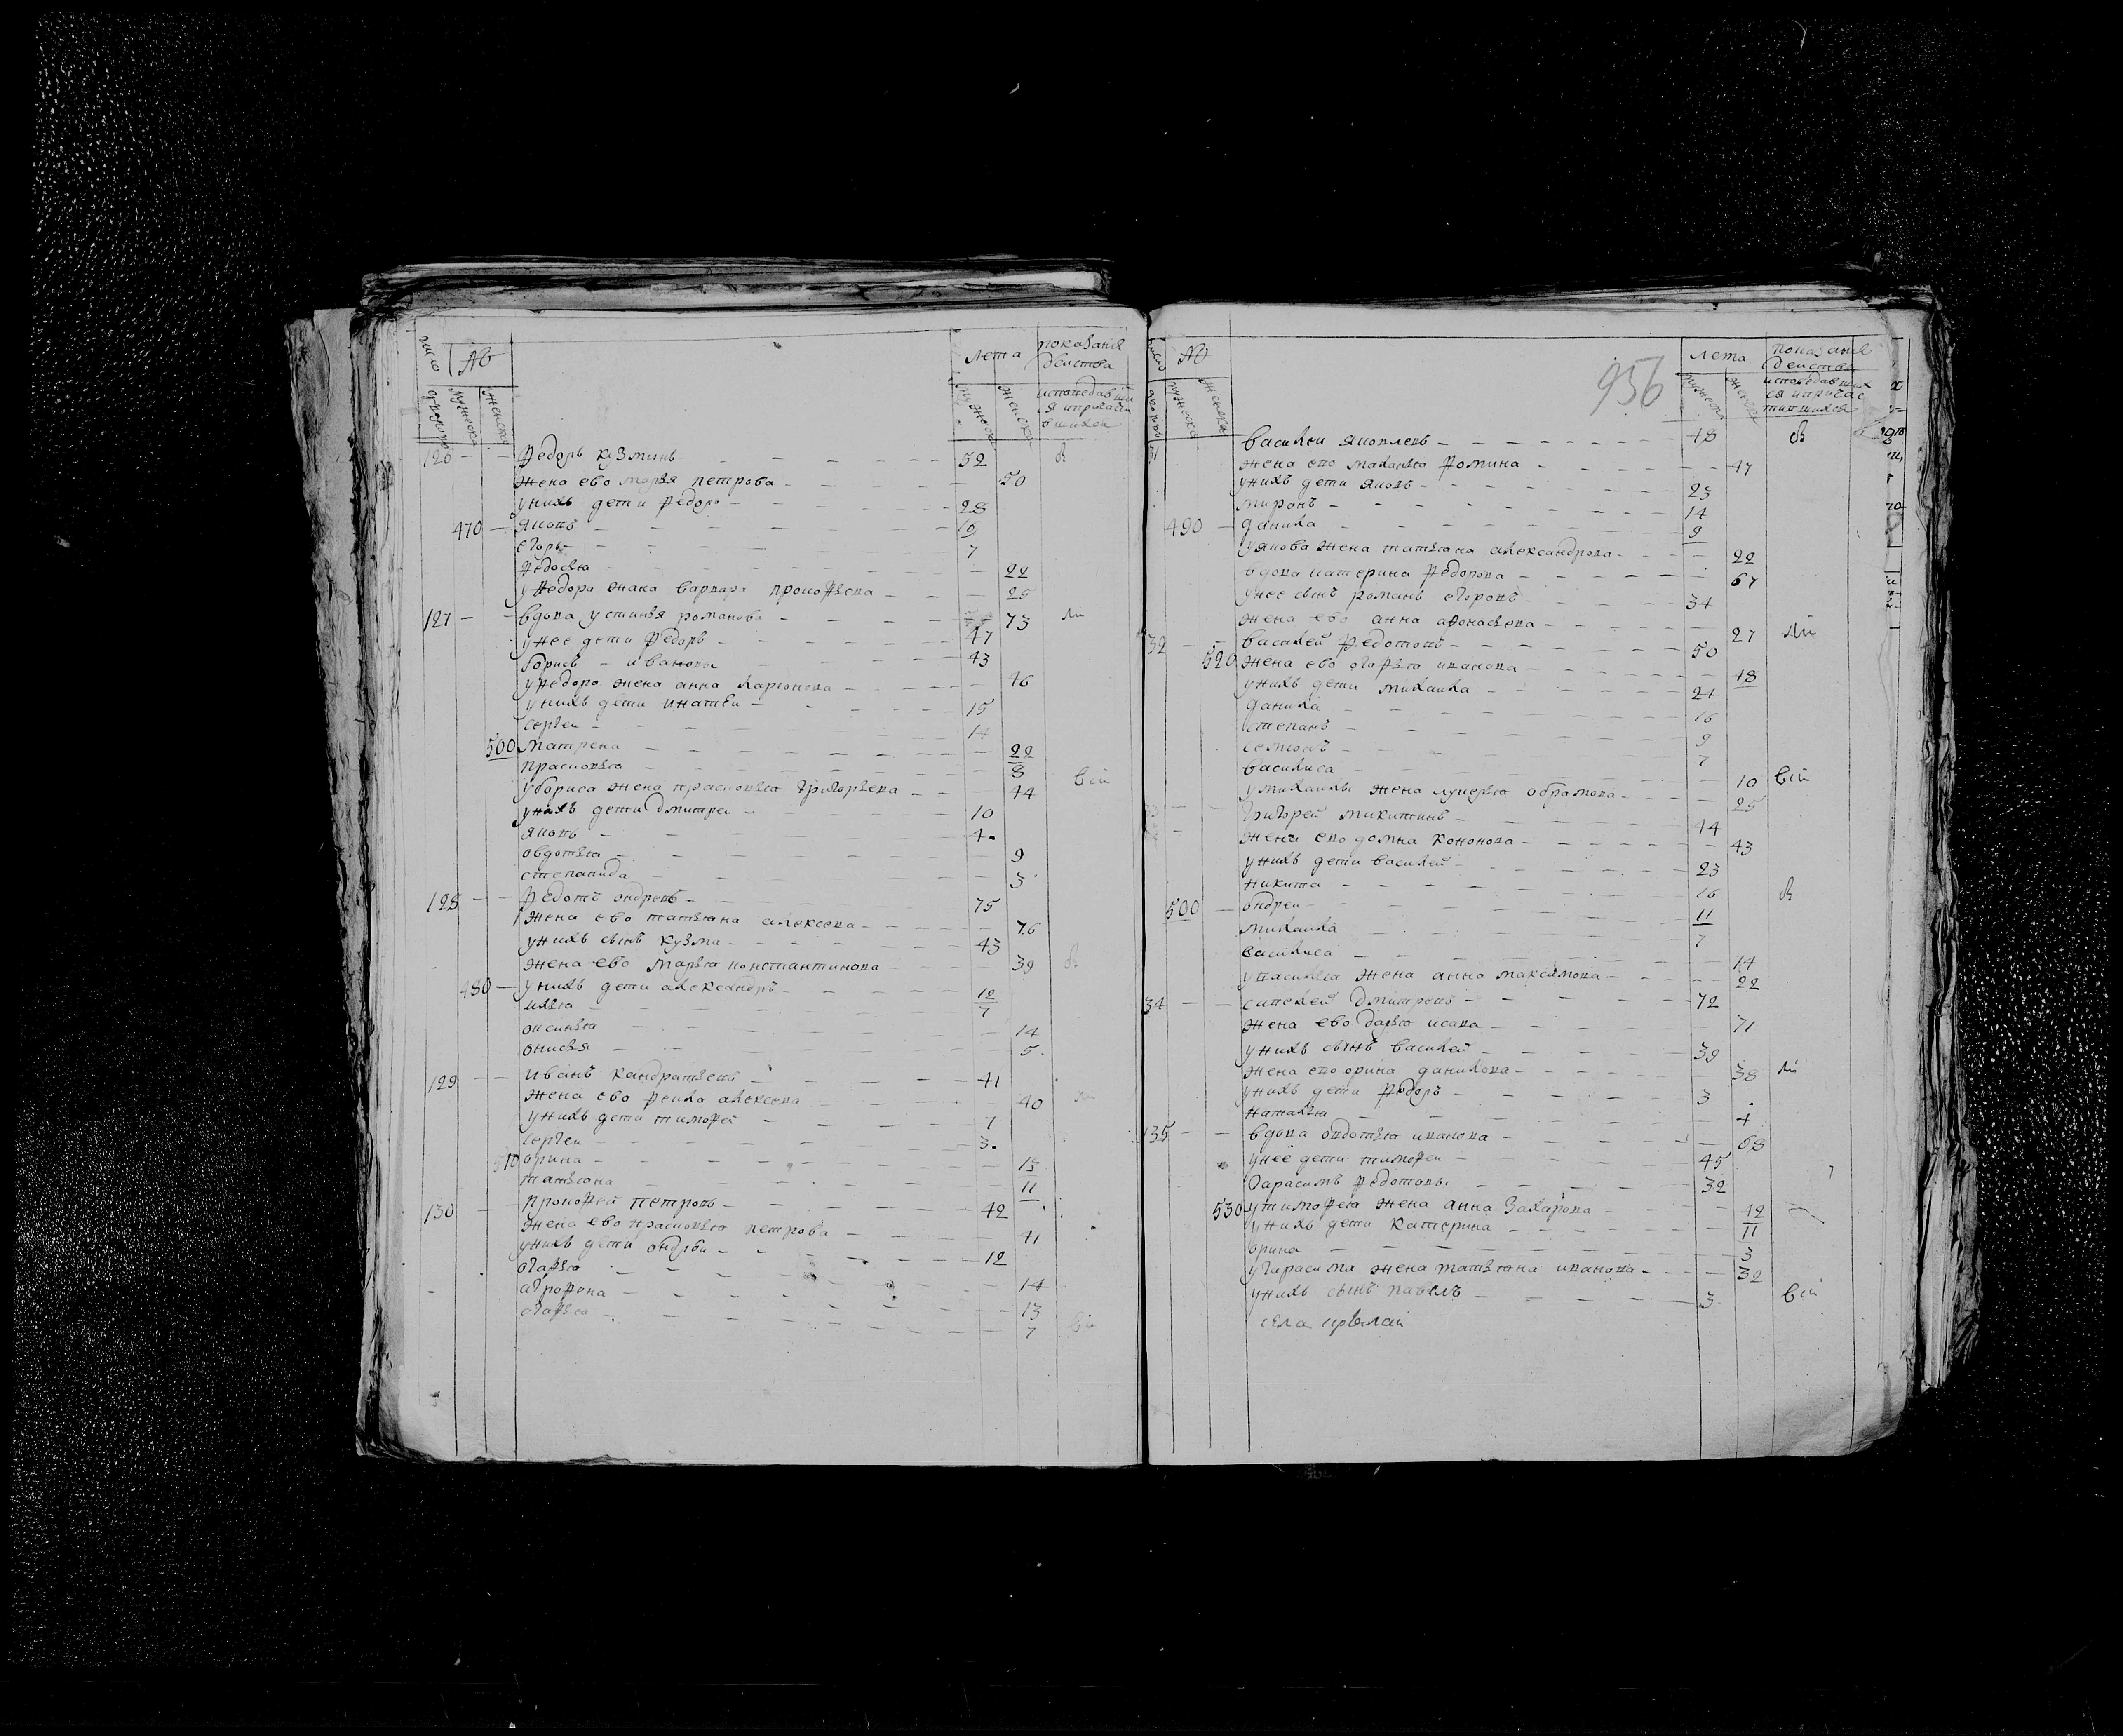 число № лета показания действа
дворовъ мужеска женска мужеска женска исповедавши
ся ипричасти
вшихся
126 Федоръ кузминъ 52
жена ево марья петрова 50
унихъ дети Федоръ 28
470 яковъ 16
егоръ 7
Федосья 22
уфедора жена варвара прокофьева 25
127 вдова устинья романова 73
унее дети Федоръ 47
борисъ ивановы 43
уфедора жена анна ларионова 46
унихъ дети игнатеи 15
сергеи 14
500 матрена 22
прасковья 8
убориса жена прасковья григорьева 44
унихъ дети дмитреи 10
яковъ 4
овдотья 9
степанида 3
128 Федотъ ондревъ 75
жена ево татьяна алексева 76
унихъ сынъ кузма 43
жена ево марья константинова 39
480 унихъ дети александръ 12
илья 7
оксинья 14
онисья 5
129 иванъ кандратьевъ 41
жена ево Фекла алексева 40
унихъ дети тимофей 7
сергеи 3
510 орина 13
татьяна 11
130 прокофей петровъ 42
жена ево прасковья петрова 41
унихъ дети ондреи 12
огафья 14
аграфена 13
огафья 7
956
№ лета показание
действа
мужеска женска мужеска исповедавших
ся ипричас
тившихся
31 василеи яковлевъ 48
жена ево маланья Фомина 47
унихъ дети яковъ 23
миронъ 14
490 данила 9
уякова жена татьяна александрова 22
вдова катерина Федорова 67
унее сынъ романъ егоровъ 34
жена ево анна афонасьева 27
32 василей Федотовъ 50
520 жена ево огафья иванова 48
унихъ дети михаила 21
данила 16
степанъ 9
семионъ 7
василиса 10
умихаилы жена лукерья обрамова 25
григорей микитинъ 44
жена ево домна кононова 43
унихъ дети василей 23
никита 16
500 ондреи 11
михаила 7
василиса 14
увасилья жена анна максимова 22
34 савелей дмитревъ 72
жена ево дарья исаева 71
унихъ сынъ василей 39
жена ево орина данилова 38
унихъ дети Федоръ 3
наталья 4
135 вдова овдотья иванова 68
унее дети тимофеи 45
гарасимъ Федотовы 32
530 утимофея жена анна захарова 42
унихъ дети катерина 11
орина 3
угарасима жена татьяна иванова 32
унихъ сынъ павелъ 3
села